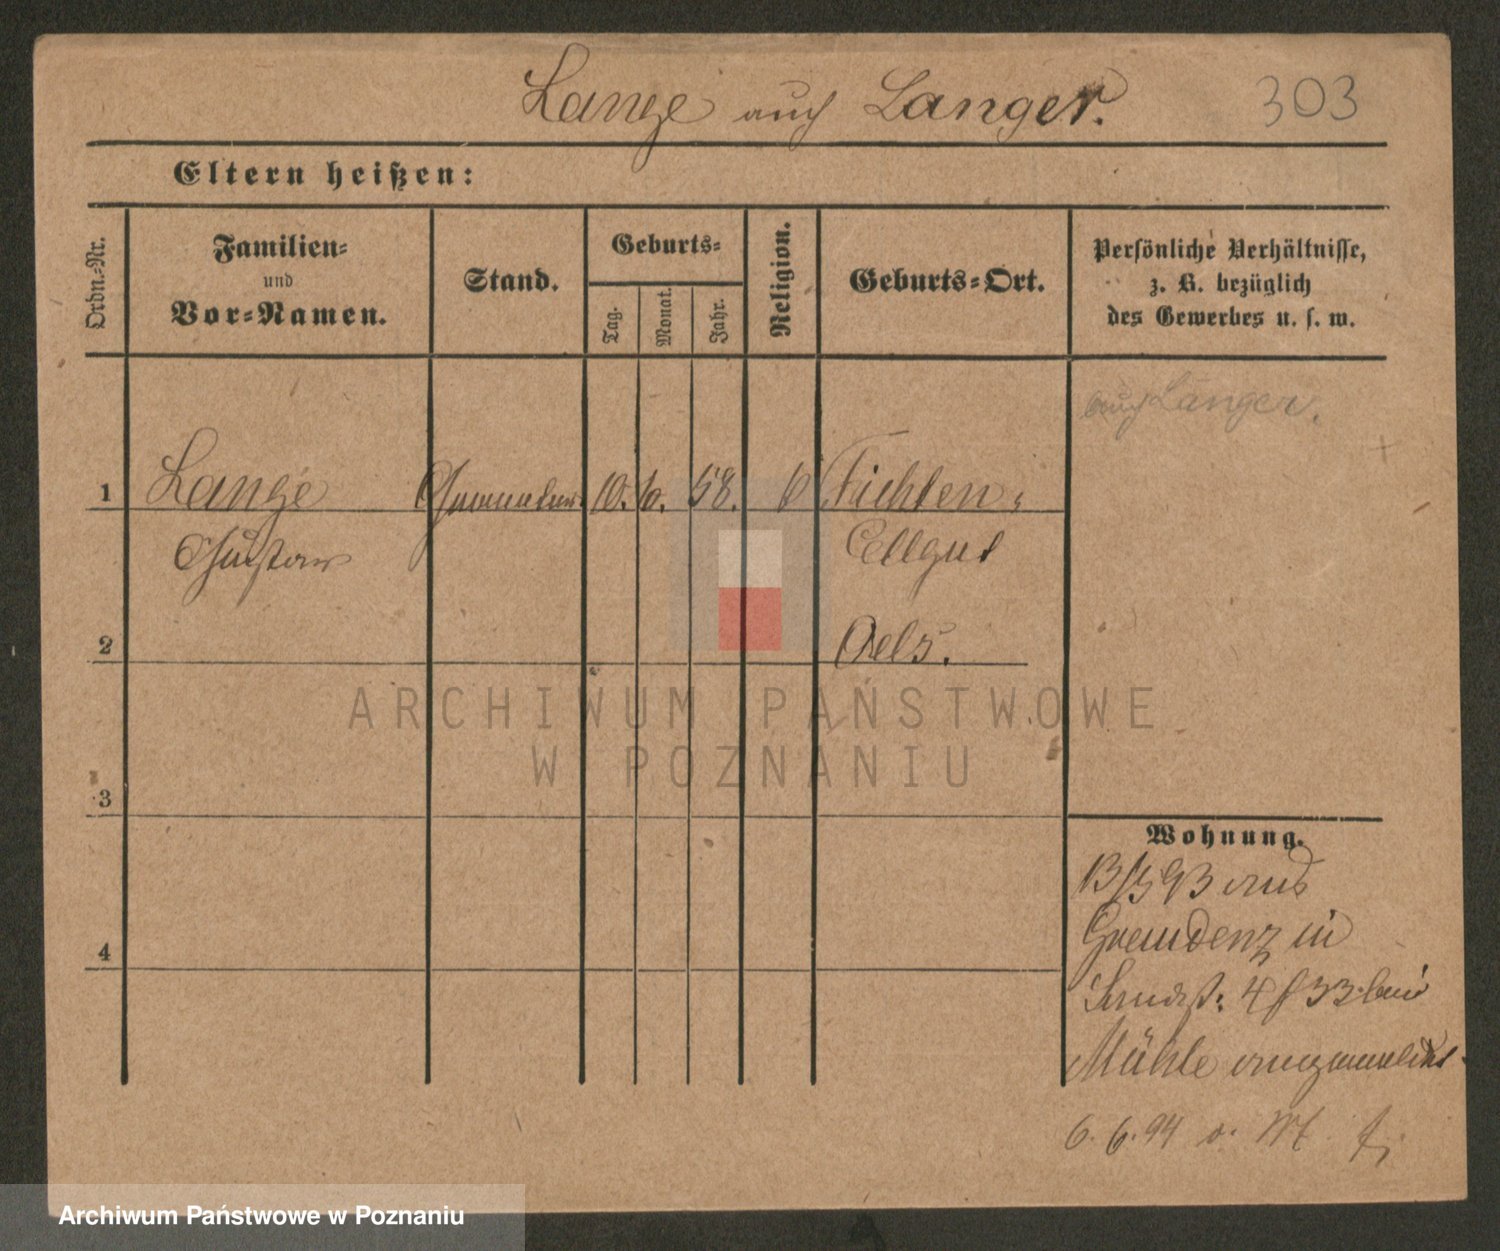 Lange auch Langer.
303
Eltern heißen:
Ordn.-Nr.
Familien-
und
Vor-Namen.
Stand.
Geburts-
Tag.
Monat.
Jahr.
Religion.
Geburts-Ort.
Persönliche Verhältnisse,
z. B. bezüglich
des Gewerbes u. s. w.
auch Langer.
1 Lange 10. 58. Fichten-
Gustav Ellgut
2 Oels.
3
4
Wohnung.
93 aus
Graudenz in
4 33 bei
Mühle angemeldet
6. 6. 94
ARCHIWUM PAŃSTWOWE
W POZNANIU
Archiwum Państwowe w Poznaniu